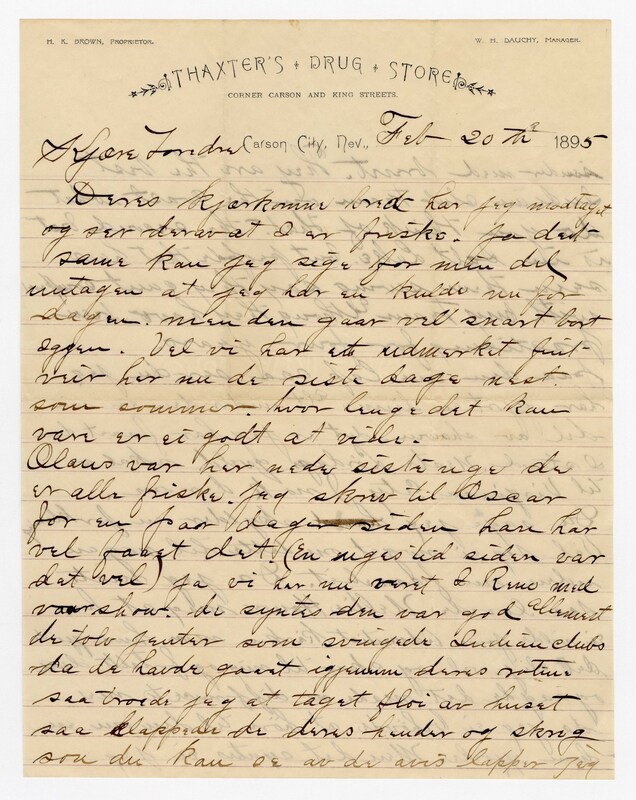 H. K. BROWN, PROPRIETOR.
W. H. DAUCHY, MANAGER.
THAXTER'S DRUG STORE
CORNER CARSON AND KING STREETS.
Carson City, Nev., Feb 20th 1895
Kjære Tordre
Deres kjærkomne bred har jeg modtaget
og ser derav at I er friske. Ja det
same kan jeg sige for min del
untagen at jeg har en kulde nu for
dagen. men den gaar vell snart bort
iggen. Vel vi har ett udmerket fint
veir her nu de siste dage nest
som sommer. hvor lenge det kan
vare er ei godt at vide.
Olaus var her nede siste uge de
er alle friske. jeg skrev til Oscar
for en paar dager siden han har
vel faaet det. (En uges tid siden var
det vel) ja vi har nu veret I Reno med
vaar show. de syntes den var god allemest
de tolv jenter som svingede Indian clubs
da de havde gaaet igjenum deres rotine
saa troede jeg at taget fløi av huset
saa klappede de deres hender og skreg
som du kan se av de avis lapper jeg